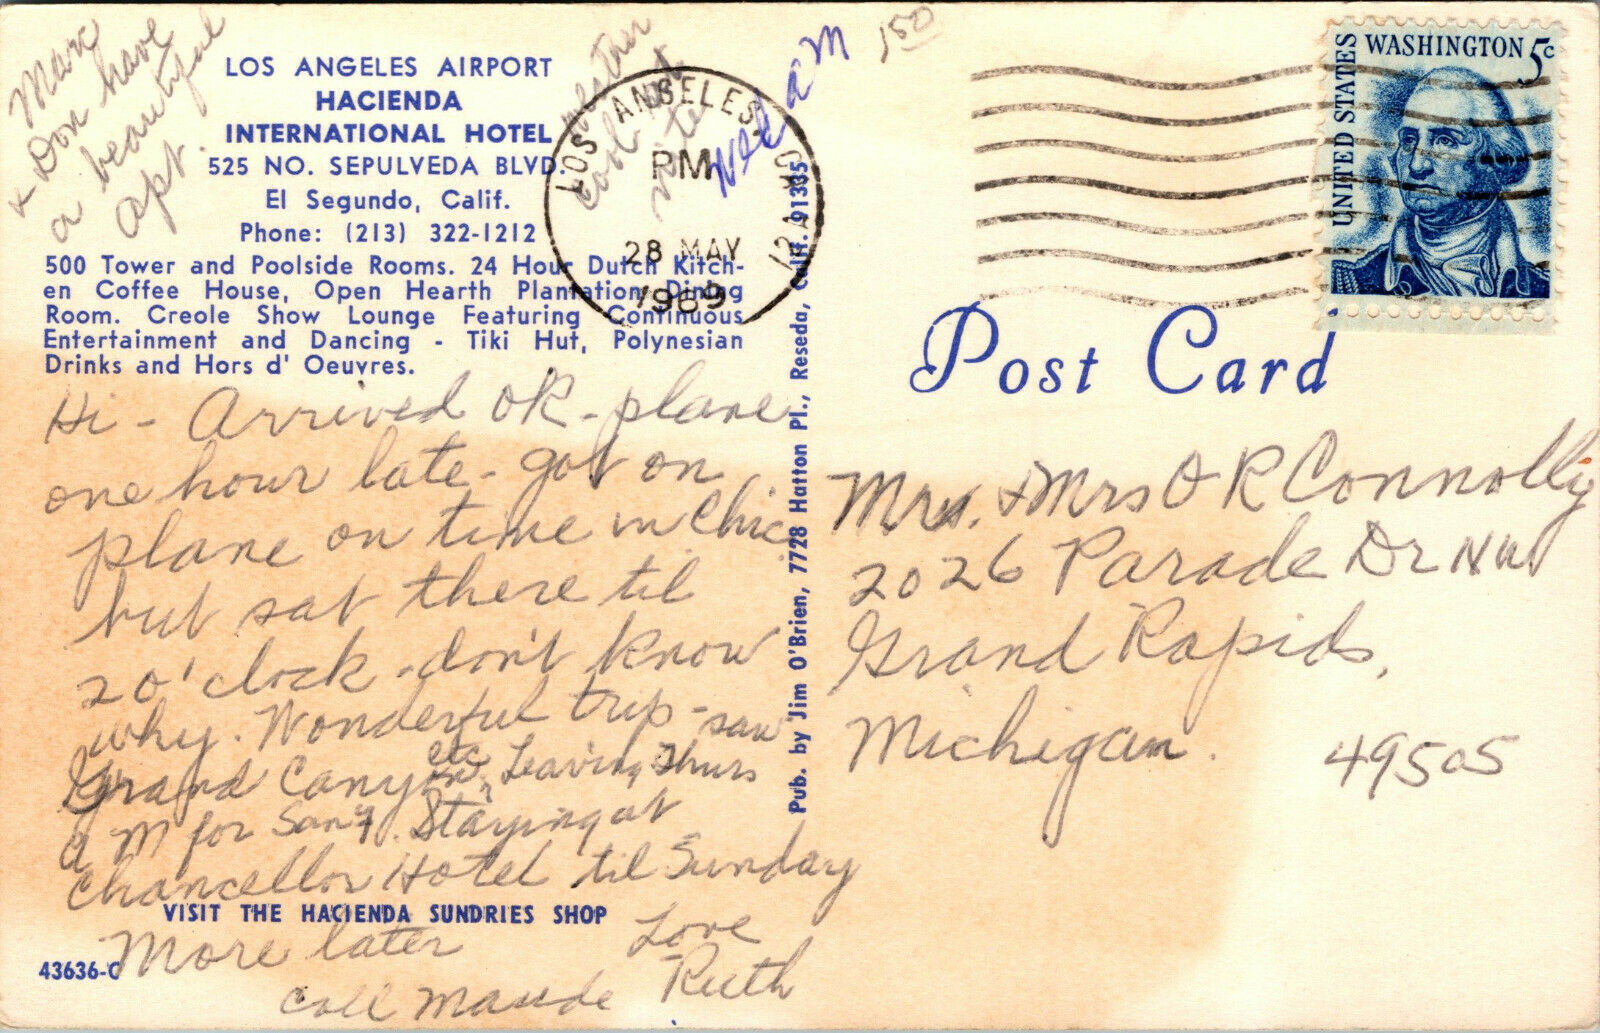 Marc
+ Don have
a beautiful
apt.
LOS ANGELES AIRPORT
HACIENDA
INTERNATIONAL HOTEL
525 NO. SEPULVEDA BLVD.
El Segundo, Calif.
Phone: (213) 322-1212
500 Tower and Poolside Rooms. 24 Hour Dutch Kitch-
en Coffee House, Open Hearth Plantation Dining
Room. Creole Show Lounge Featuring Continuous
Entertainment and Dancing - Tiki Hut, Polynesian
Drinks and Hors d' Oeuvres.
cool at
nite
Wed am
150
LOS ANGELES, CA
PM
28 MAY
1969
12A
UNITED STATES
WASHINGTON 5c
Post Card
Hi - Arrived OK - plane
one hour late - got on
plane on time in Chic
but sat there til
20'clock - don't know
why. Wonderful trip - saw
Grand Canyon etc. Leaving Thurs
a M for San F. Staying at
Chancellor Hotel til Sunday
VISIT THE HACIENDA SUNDRIES SHOP
More later Love
Ruth
call Maude
43636-C
Pub. by Jim O'Brien, 7728 Hatton Pl., Reseda, Calif. 91335
Mrs. + Mrs O R Connolly
2026 Parade Dr NW
Grand Rapids,
Michigan.
49505